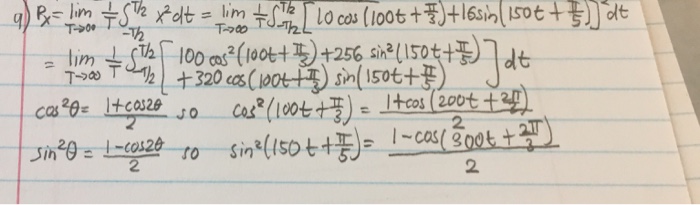 a) Pₓ = lim T→∞ 1/T ∫_{-T/2}^{T/2} x² dt = lim T→∞ 1/T ∫_{-T/2}^{T/2} [10 cos(100t + π/3) + 16 sin(150t + π/5)]² dt
= lim T→∞ 1/T ∫_{-T/2}^{T/2} [100 cos²(100t + π/3) + 256 sin²(150t + π/5)
+ 320 cos(100t + π/3) sin(150t + π/5)] dt
cos²θ = (1 + cos2θ)/2 so cos²(100t + π/3) = (1 + cos(200t + 2π/))/2
sin²θ = (1 - cos2θ)/2 so sin²(150t + π/5) = (1 - cos(300t + 2π/3))/2